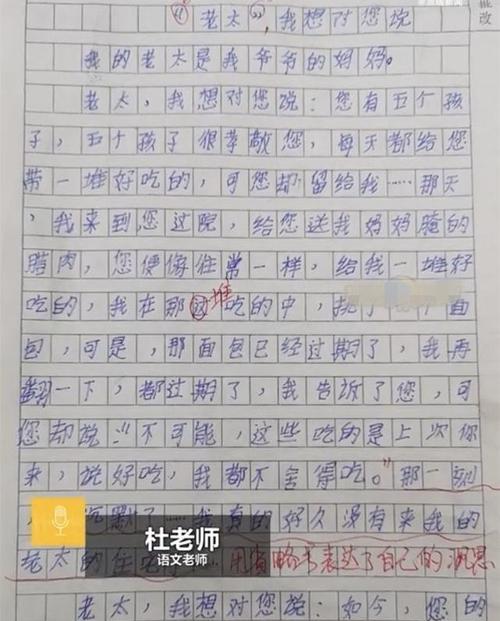 批改
“老太”,我想对您说
我的老太是我爷爷的妈妈。
老太,我想对您说:您有五个孩
子,五个孩子很孝敬您,每天都给您
带一堆好吃的,可您却留给我……那天
,我来到您过院,给您送我妈妈腌的
腊肉,您便像往常一样,给我一堆好
吃的,我在那堆吃的中,挑了 面
包,可是,那面包已经过期了,我再
翻一下,都过期了,我告诉了您,可
您却说:“不可能,这些吃的是上次你
来,说好吃,我都不舍得吃。”那一刻
,沉默了……我真的好久没有来我的
老太的住 用省略号表达了自己的沉思
杜老师
语文老师
老太,我想对您说:如今,您的